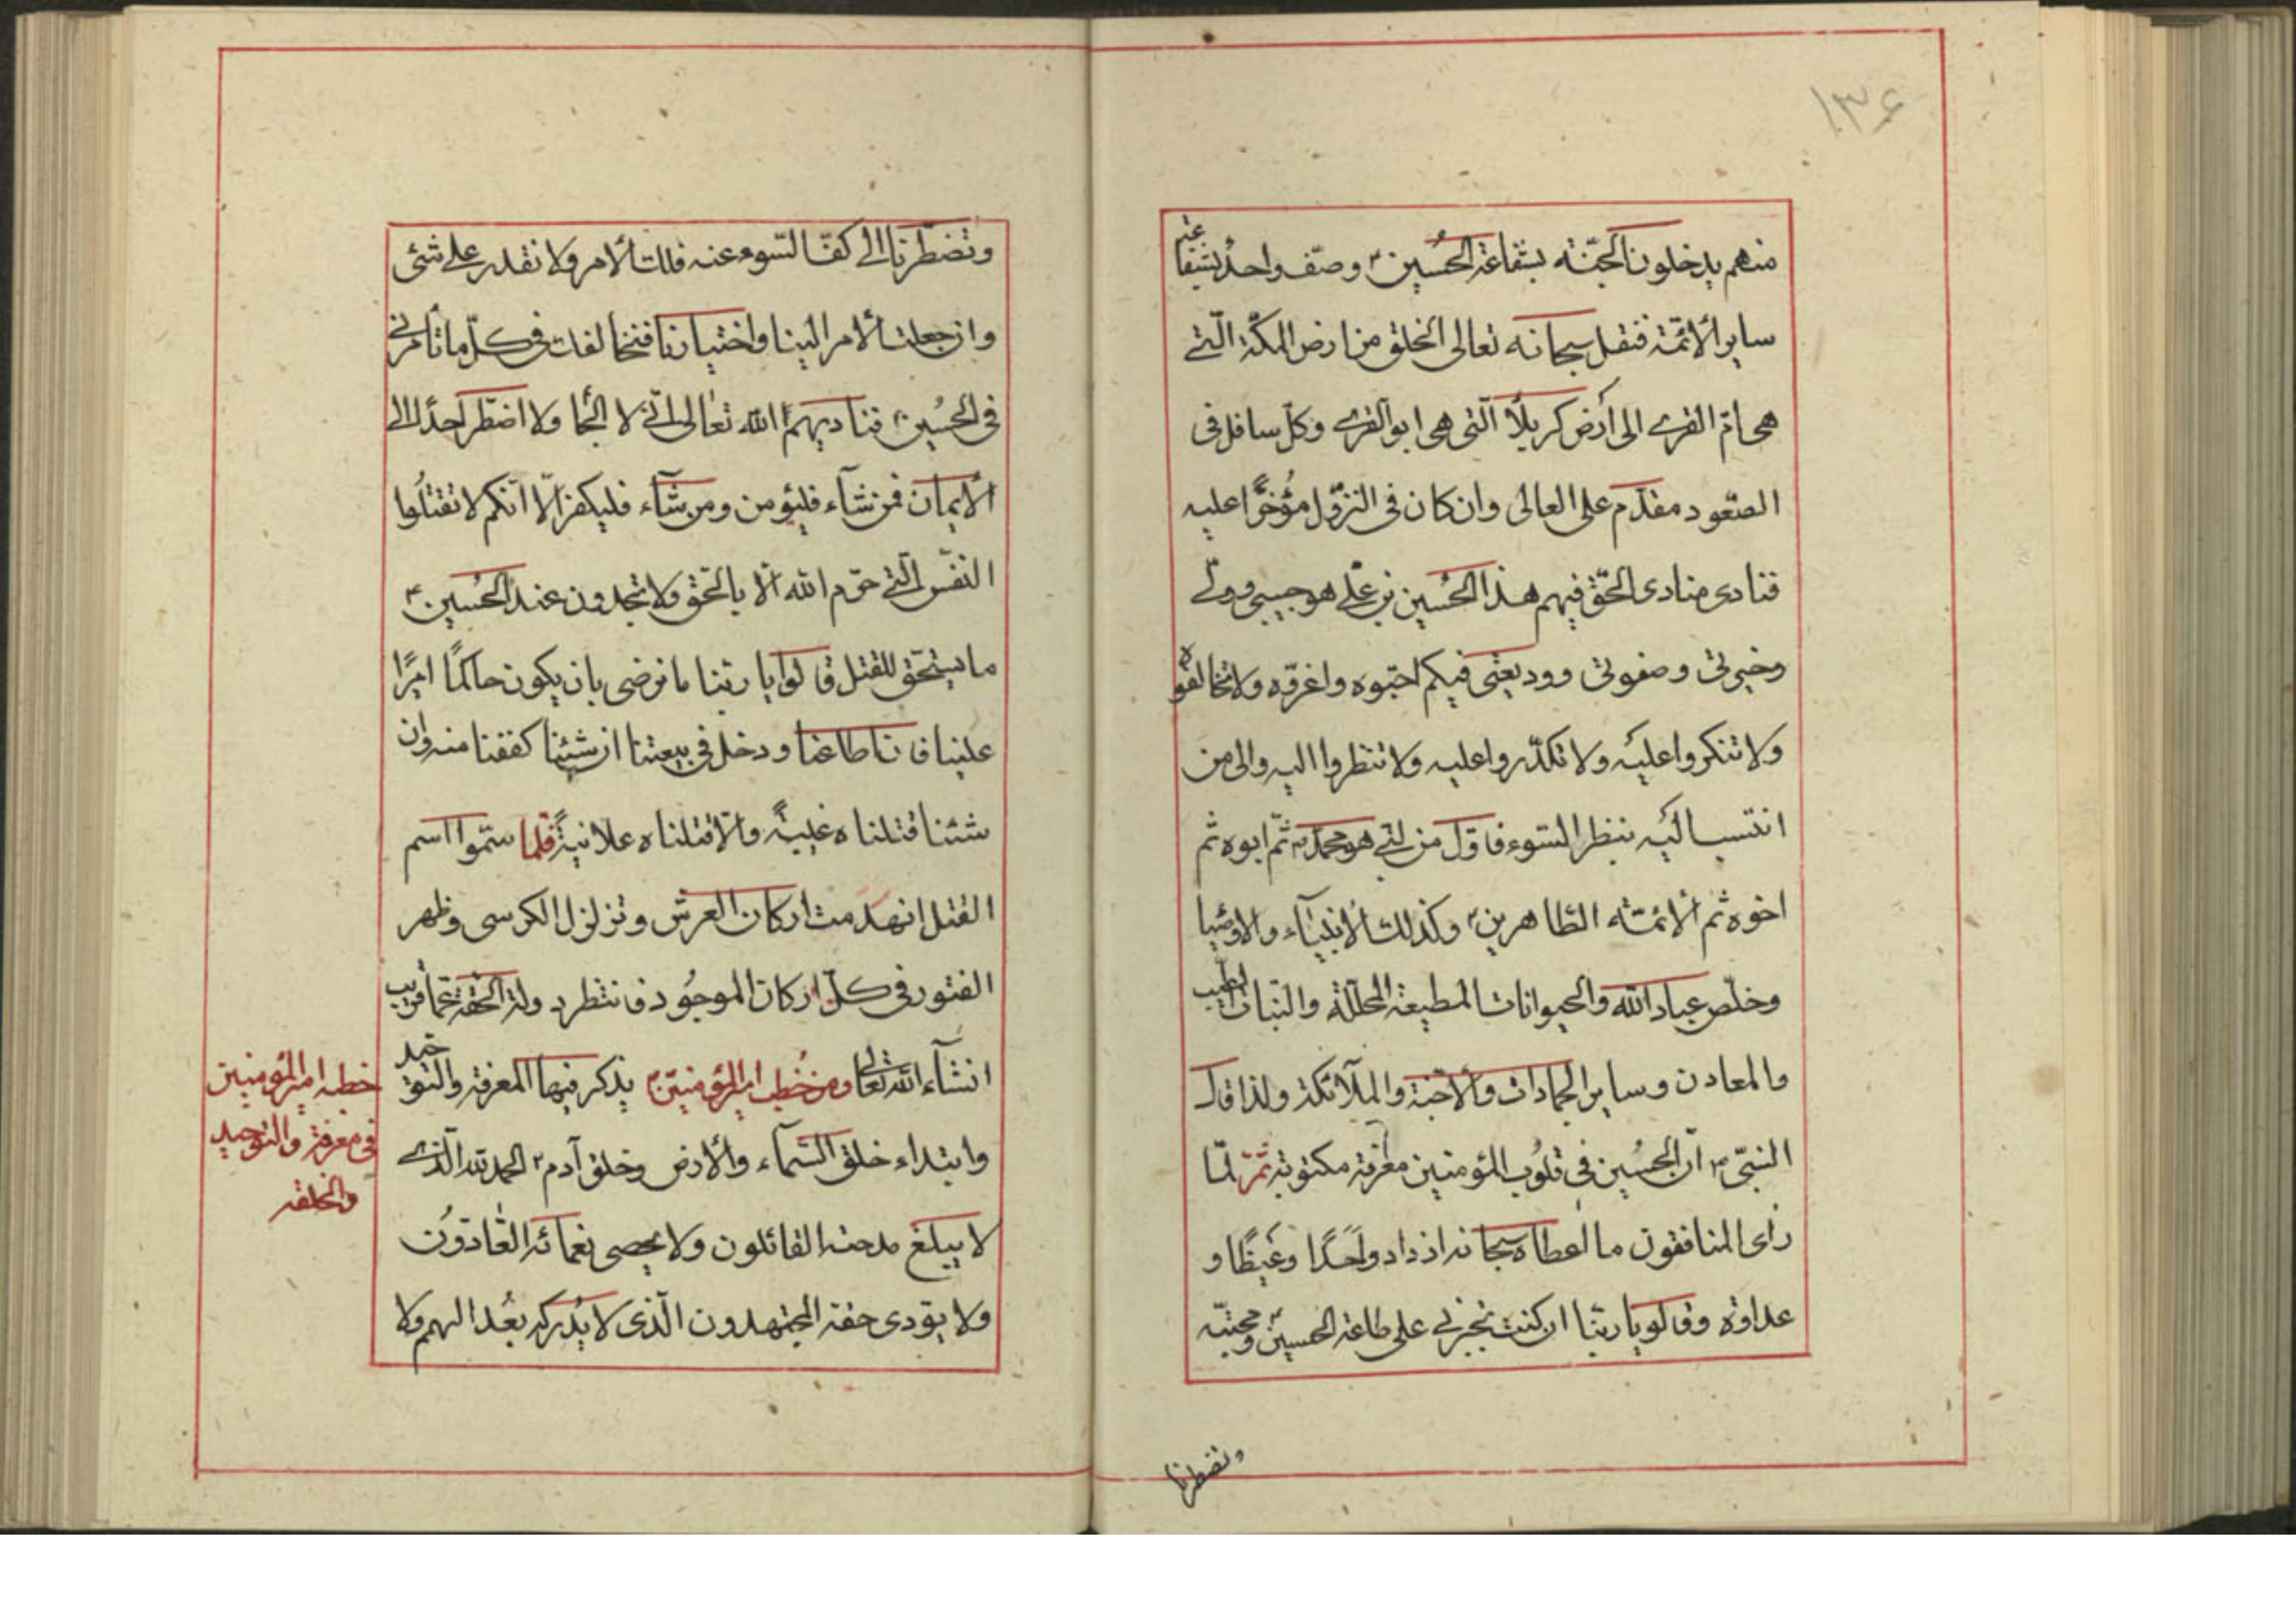 ۱۳۶
منهم يدخلون الجنّة بشفاعة الحُسين ع وصنف واحدٌ بشفاعة
ساير الأئمّة فنقل سبحانه تعالى الخلق من ارض المكّة الّتي
هى امّ القرى الى أرض كربلا الّتى هى ابو القرى وكلّ سافل فى
الصّعود مقدّم على العالى وان كان فى النزول مؤُخّرًا عليه
فنادى منادى الحّق فيهم هذا الحُسين بن علي هو حبيبي وولّي
وخيرتى وصفوتى ووديعتى فيكم احبّوه واعزّوه ولا تخالفوه
ولا تنكروا عليه ولا تكدّروا عليه ولا تنظروا اليه والى من
انتسب اليه بنظر السّوء فاوّل من لبّى هو محمد ص ثمّ ابوه ثم
اخوه ثم الائمّة الطاهرين ع وكذلك الانبيآء والاوصيا
وخلّص عباد الله والحيوانات المطيعة المحلّلة والنّبات الطيب
والمعادن وساير الجمادات والاجنة والملآئكة ولذا قال
النبّى ص انّ الحسُين فى قلوُب المؤمنين معرفة مكتوبة ثمّ لمّا
رأى المنافقون ما اعطاه سبحانه ازدادوا حَسَدًا وغَيظًا و
عداوة وقالو يا ربّنا ان كنت تجبرنى على طاعة الحسين ع ومحبتّه
وتضطرنا
وتضطّرنا الى كفّ السّوء عنه فلك الأمر ولا نقدر على شئى
وان جعلت الأمر الينا واختيارنا فنخالفك فى كلّ ما تأمرنى
فى الحُسين ع فناديهمُ الله تعالى انّى لا الجأ ولا اضطّر احدًا الى
الأيمان فمن شآء فليؤمن ومن شآء فليكفر الّا انّكم لا تقتلوا
النفّس الّتى حرّم الله الّا بالحّق ولا تجدون عند الحُسين ع
ما يستحّق للقتل قالوا يا ربّنا ما نرضى بان يكون حاكمًا اميرًا
علينا فان اطاعنا ودخل فى بيعتنا ان شئنا كففنا منه وان
شئنا قتلناه غيبةً والّا قتلناه علانيةً فلمّا سمّوا اسم
القتل انهدمت اركان العرش وتزلزل الكرسى وظهر
الفتور فى كلّ اركان الموجُود فانتظر دولة الحقة عمّا قريب
انشآء الله تعالى ومن خُطب امير المؤمنين ع يذكر فيها المعرفة والتوحيد
وابتداء خلق السّمآء والأرض وخلق آدم ع الحمد لله الّذى
لا يبلغ مدحته القائلون ولا يحصى نعمائه العّادّوُن
ولا يؤدى حقه المجتهدون الّذى لا يُدركه بعُد الهمم ولا
خطبه امير المؤمنين
فى معرفة والتوحيد
والخلقه